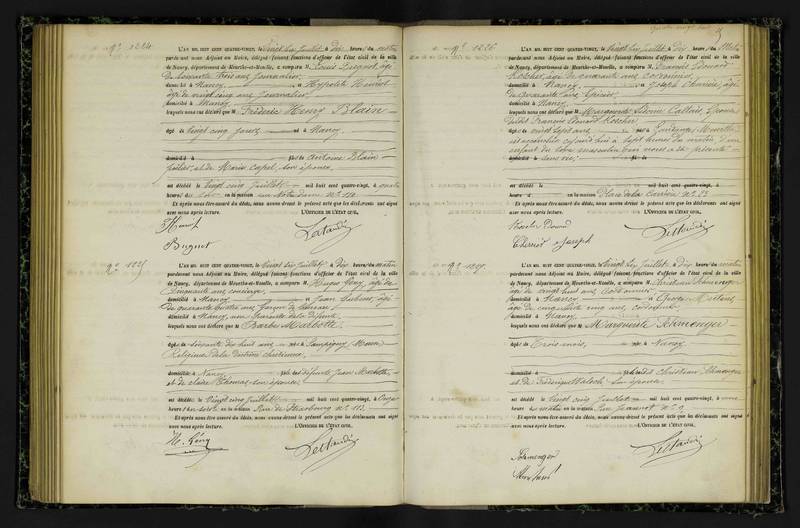 N° 1224
L'AN MIL HUIT CENT QUATRE-VINGT, le vingt six juillet à dix heures du matin
pardevant nous Adjoint au Maire, délégué faisant fonctions d'officier de l'état civil de la ville
de Nancy, département de Meurthe-et-Moselle, a comparu M. Louis Buquet, âgé
de soixante trois ans, journalier,
domicilié à Nancy, et Hypolite Henriot
âgé de vingt cinq ans, journalier,
domicilié à Nancy
lesquels nous ont déclaré que M Frédéric Henry Blain
âgé de vingt cinq jours, né à Nancy
domicilié à fils de Antoine Blain
et de Marie Capel, son épouse,
est décédé le vingt cinq juillet mil huit cent quatre-vingt, à quatre
heures du soir en la maison rue Notre Dame N° 110
Et après nous être assuré du décès, nous avons dressé le présent acte que les déclarants ont signé
avec nous après lecture. L'OFFICIER DE L'ÉTAT CIVIL,
Buquet
N° 1225
L'AN MIL HUIT CENT QUATRE-VINGT, le vingt six juillet à dix heures du matin
pardevant nous Adjoint au Maire, délégué faisant fonctions d'officier de l'état civil de la ville
de Nancy, département de Meurthe-et-Moselle, a comparu M. Hugo Gény, âgé de
cinquante ans, concierge,
domicilié à Nancy et Jean
de quarante quatre ans, garçon de
domicilié à Nancy,
lesquels nous ont déclaré que M Barbe Marbotte,
âgée de soixante dix huit ans, née à Lampigny (Meuse)
Religieuse de la doctrine chrétienne,
domiciliée à Nancy fille des défunts Jean Marbotte
et de Claire Thomas, son épouse
est décédée le vingt cinq juillet mil huit cent quatre-vingt, à onze
heures du soir en la maison Rue de Strasbourg N° 113
Et après nous être assuré du décès, nous avons dressé le présent acte que les déclarants ont signé
avec nous après lecture. L'OFFICIER DE L'ÉTAT CIVIL,
H. Gény
N° 1226
L'AN MIL HUIT CENT QUATRE-VINGT, le vingt six juillet à dix heures du matin
pardevant nous Adjoint au Maire, délégué faisant fonctions d'officier de l'état civil de la ville
de Nancy, département de Meurthe-et-Moselle, a comparu M. François Edouard
âgé de quarante ans, cordonnier,
domicilié à Nancy, et Joseph âgé
de quarante ans, épicier,
domicilié à Nancy
lesquels nous ont déclaré que M Marguerite Callais, épouse
dudit François Edouard
âgée de vingt sept ans, née à (Moselle)
est accouchée cejourd'hui à sept heures du matin, d'un
enfant du sexe masculin, qui nous a été présenté
sans vie.
est décédé le mil huit cent quatre-vingt, à
heures en la maison Place de la Carrière N° 33
Et après nous être assuré du décès, nous avons dressé le présent acte que les déclarants ont signé
avec nous après lecture. L'OFFICIER DE L'ÉTAT CIVIL,
Joseph
N° 1227
L'AN MIL HUIT CENT QUATRE-VINGT, le vingt six juillet à dix heures du matin
pardevant nous Adjoint au Maire, délégué faisant fonctions d'officier de l'état civil de la ville
de Nancy, département de Meurthe-et-Moselle, a comparu M. Christian Schmenger
âgé de vingt huit ans, cordonnier,
domicilié à Nancy et George
âgé de cinquante cinq ans, cordonnier,
domicilié à Nancy
lesquels nous ont déclaré que M Marguerite Schmenger
âgée de trois mois, née à Nancy
domiciliée à fille dudit Christian Schmenger
et de Frédérique son épouse
est décédée le vingt cinq juillet mil huit cent quatre-vingt, à onze
heures du matin en la maison Rue Jeannot N° 9
Et après nous être assuré du décès, nous avons dressé le présent acte que les déclarants ont signé
avec nous après lecture. L'OFFICIER DE L'ÉTAT CIVIL,
Schmenger